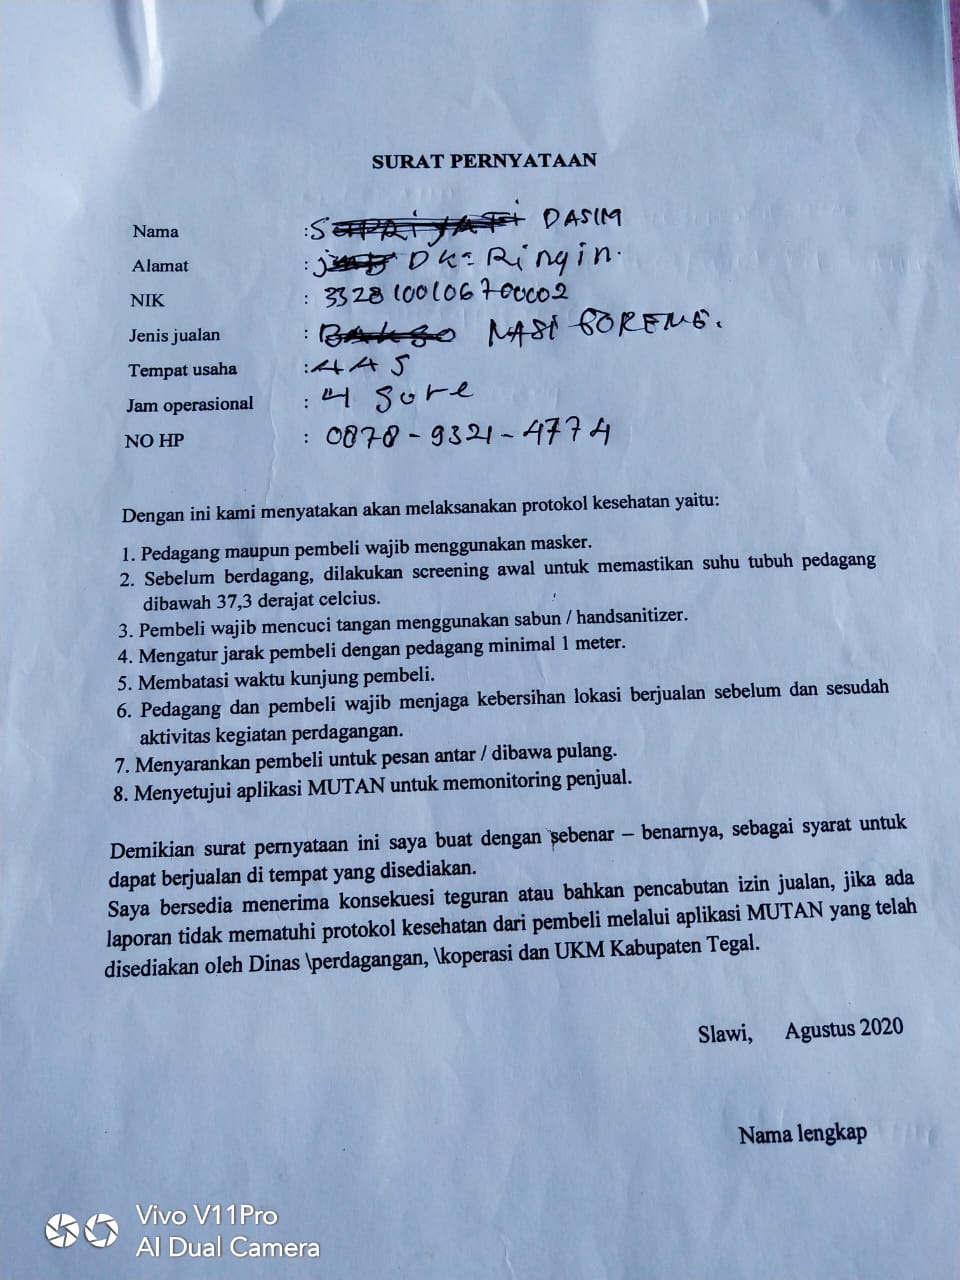 SURAT PERNYATAAN
Nama : DASIM
Alamat : Dk: Ringin.
NIK : 3328100106700002
Jenis jualan : NASI GORENG.
Tempat usaha : AAS
Jam operasional : 4 Sore
NO HP : 0878-9321-4774
Dengan ini kami menyatakan akan melaksanakan protokol kesehatan yaitu:
1. Pedagang maupun pembeli wajib menggunakan masker.
2. Sebelum berdagang, dilakukan screening awal untuk memastikan suhu tubuh pedagang
dibawah 37,3 derajat celcius.
3. Pembeli wajib mencuci tangan menggunakan sabun / handsanitizer.
4. Mengatur jarak pembeli dengan pedagang minimal 1 meter.
5. Membatasi waktu kunjung pembeli.
6. Pedagang dan pembeli wajib menjaga kebersihan lokasi berjualan sebelum dan sesudah
aktivitas kegiatan perdagangan.
7. Menyarankan pembeli untuk pesan antar / dibawa pulang.
8. Menyetujui aplikasi MUTAN untuk memonitoring penjual.
Demikian surat pernyataan ini saya buat dengan sebenar – benarnya, sebagai syarat untuk
dapat berjualan di tempat yang disediakan.
Saya bersedia menerima konsekuesi teguran atau bahkan pencabutan izin jualan, jika ada
laporan tidak mematuhi protokol kesehatan dari pembeli melalui aplikasi MUTAN yang telah
disediakan oleh Dinas \perdagangan, \koperasi dan UKM Kabupaten Tegal.
Slawi, Agustus 2020
Nama lengkap
Vivo V11Pro
AI Dual Camera